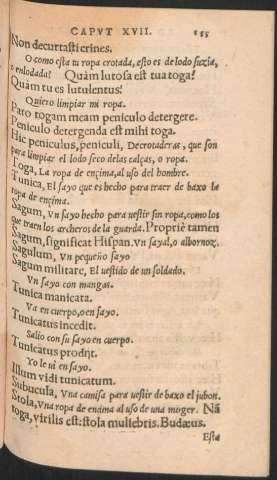 CAPVT XVII. 155
Non decurtasti crines.
O como esta tu ropa crotada, esto es de lodo suzia,
o enlodada! Quàm lutosa est tua toga!
Quàm tu es lutulentus!
Quiero limpiar mi ropa.
Paro togam meam peniculo detergere.
Peniculo detergenda est mihi toga.
Hic peniculus, peniculi, Decrotaderas, que son
para limpiar el lodo seco de las calças, o ropa.
Toga, La ropa de encima, al uso del hombre.
Tunica, El sayo que es hecho para traer de baxo la
ropa de ençima.
Sagum, Vn sayo hecho para uestir sin ropa, como los
que traen los archeros de la guarda. Propriè tamen
Sagum, significat Hispan. vn sayal, o albornoz.
Sagulum, Vn pequeño sayo
Sagum militare, El uestido de un soldado.
Vn sayo con mangas.
Tunica manicata.
Va en cuerpo, o en sayo.
Tunicatus incedit.
Salio con su sayo en cuerpo.
Tunicatus prodijt.
Yo le ui en sayo.
Illum vidi tunicatum.
Subucula, Vna camisa para uestir de baxo el jubon.
Stola, Vna ropa de encima al uso de una muger. Nã
toga, virilis est: stola muliebris. Budæus.
Esta